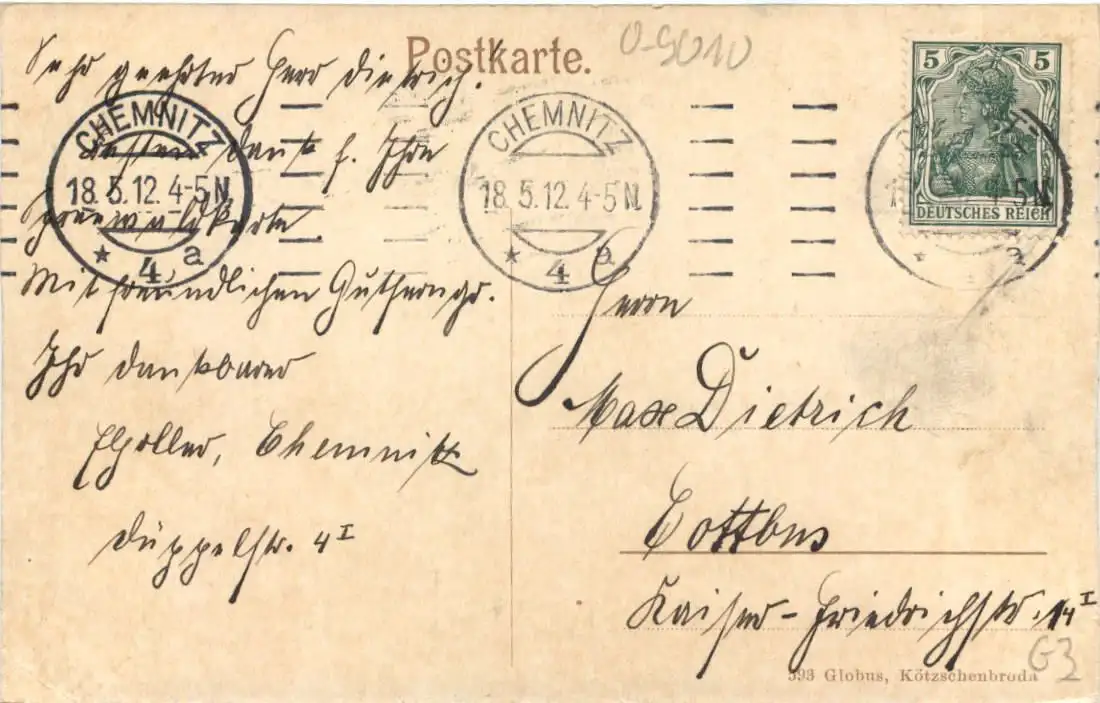 Postkarte.
0-9010
Sehr geehrter Herr Dietrich!
Besten Dank f. Ihre
Spreewaldkarte
Mit freundlichen
Ihr dankbarer
Chemnitz
Düppelstr. 4 I
CHEMNITZ
18.5.12.4-5N.
* 4 a
CHEMNITZ
18.5.12.4-5N.
* 4 a
5 5
DEUTSCHES REICH
4-5N.
* a
Herrn
Max Dietrich
Cottbus
Kaiser-Friedrichstr. 14 I
G3
393 Globus, Kötzschenbroda